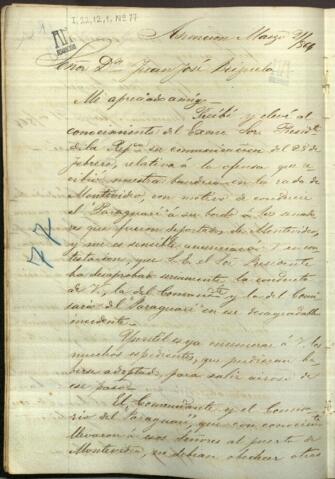 I, 22, 12, 1, Nº 77
Asuncion Marzo 21/864
Señor Dn Juan José Brizuela
Mi apreciado amigo
Recibí y elevé al
conocimiento del Exmo Sor. Presidte
de la Repca su comunicacion del 25 de
febrero, relativa á la ofensa que re
cibió nuestra bandera en la rada de
Montevideo, con motivo de conducir
el "Paraguarí" á su bordo á los senado
res que fueron deportados de Montevideo,
y me es sensible anunciar á V. en con
testacion, que S. E. el Sor Presidente
ha desaprobado seriamente la conducta
de V., la del Comandte y la del Comi
sario del "Paraguarí" en ese desagradable
incidente.
Inútil es ya enumerar á V. los
muchos espedientes, que pudieran ha
berse adoptado para salir airoso de
ese paso.
El Comandante y el Comisa
rio del "Paraguarí", que con conocimto
llevaron á esos Señores al puerto de
Montevideo, no debian obedecer otra
77